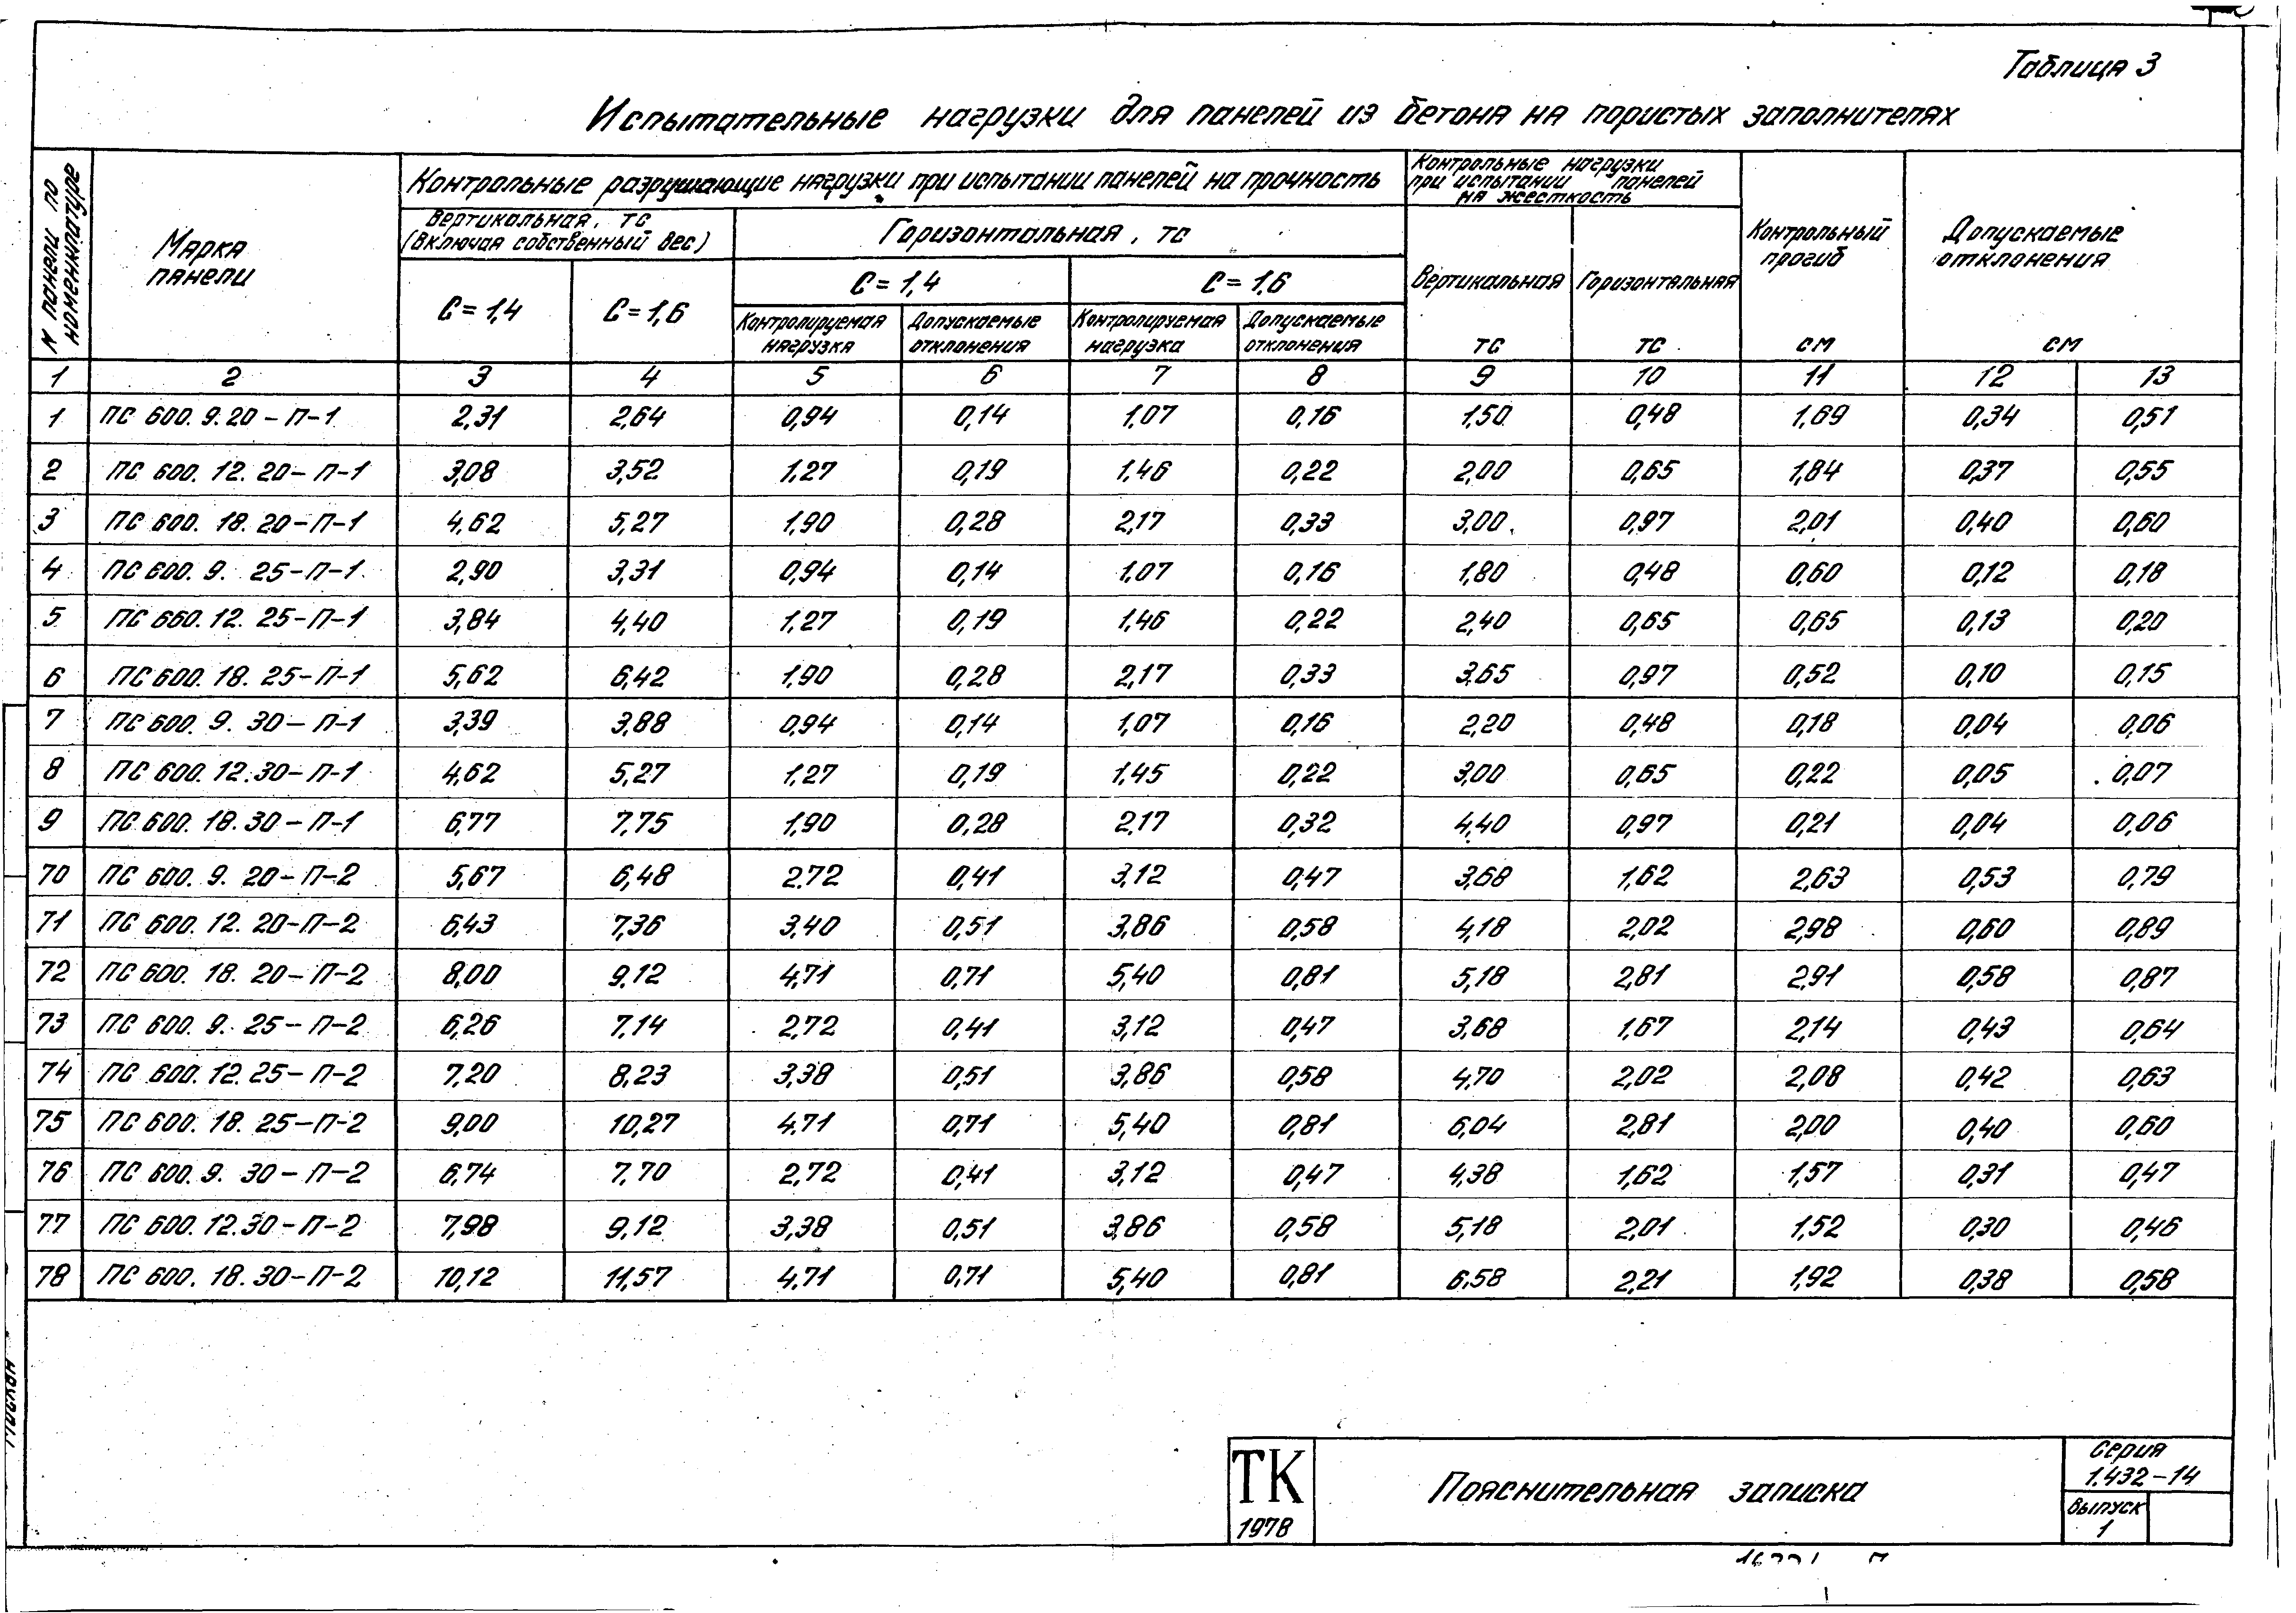 Таблица 3
Испытательные нагрузки для панелей из бетона на пористых заполнителях
N панели по номенклатуре
Марка панели
Контрольные разрушающие нагрузки при испытании панелей на прочность
Контрольные нагрузки при испытании панелей на жесткость
Контрольный прогиб
Допускаемые отклонения
Вертикальная, тс (включая собственный вес)
Горизонтальная, тс
Вертикальная
Горизонтальная
С = 1,4
С = 1,6
С = 1,4
С = 1,6
Контролируемая нагрузка
Допускаемые отклонения
Контролируемая нагрузка
Допускаемые отклонения
тс
тс
см
см
1 2 3 4 5 6 7 8 9 10 11 12 13
1 ПС 600.9.20-П-1 2,31 2,64 0,94 0,14 1,07 0,16 1,50 0,48 1,69 0,34 0,51
2 ПС 600.12.20-П-1 3,08 3,52 1,27 0,19 1,46 0,22 2,00 0,65 1,84 0,37 0,55
3 ПС 600.18.20-П-1 4,62 5,27 1,90 0,28 2,17 0,33 3,00 0,97 2,01 0,40 0,60
4 ПС 600.9.25-П-1 2,90 3,31 0,94 0,14 1,07 0,16 1,80 0,48 0,60 0,12 0,18
5 ПС 660.12.25-П-1 3,84 4,40 1,27 0,19 1,46 0,22 2,40 0,65 0,65 0,13 0,20
6 ПС 600.18.25-П-1 5,62 6,42 1,90 0,28 2,17 0,33 3,65 0,97 0,52 0,10 0,15
7 ПС 600.9.30-П-1 3,39 3,88 0,94 0,14 1,07 0,16 2,20 0,48 0,18 0,04 0,06
8 ПС 600.12.30-П-1 4,62 5,27 1,27 0,19 1,45 0,22 3,00 0,65 0,22 0,05 0,07
9 ПС 600.18.30-П-1 6,77 7,75 1,90 0,28 2,17 0,32 4,40 0,97 0,21 0,04 0,06
70 ПС 600.9.20-П-2 5,67 6,48 2,72 0,41 3,12 0,47 3,68 1,62 2,63 0,53 0,79
71 ПС 600.12.20-П-2 6,43 7,36 3,40 0,51 3,86 0,58 4,18 2,02 2,98 0,60 0,89
72 ПС 600.18.20-П-2 8,00 9,12 4,71 0,71 5,40 0,81 5,18 2,81 2,91 0,58 0,87
73 ПС 600.9.25-П-2 6,26 7,14 2,72 0,41 3,12 0,47 3,68 1,67 2,14 0,43 0,64
74 ПС 600.12.25-П-2 7,20 8,23 3,38 0,51 3,86 0,58 4,70 2,02 2,08 0,42 0,63
75 ПС 600.18.25-П-2 9,00 10,27 4,71 0,71 5,40 0,81 6,04 2,81 2,00 0,40 0,60
76 ПС 600.9.30-П-2 6,74 7,70 2,72 0,41 3,12 0,47 4,38 1,62 1,57 0,31 0,47
77 ПС 600.12.30-П-2 7,98 9,12 3,38 0,51 3,86 0,58 5,18 2,01 1,52 0,30 0,46
78 ПС 600.18.30-П-2 10,12 11,57 4,71 0,71 5,40 0,81 6,58 2,21 1,92 0,38 0,58
Москва
ТК
1978
Пояснительная записка
Серия
1.432-14
Выпуск
1